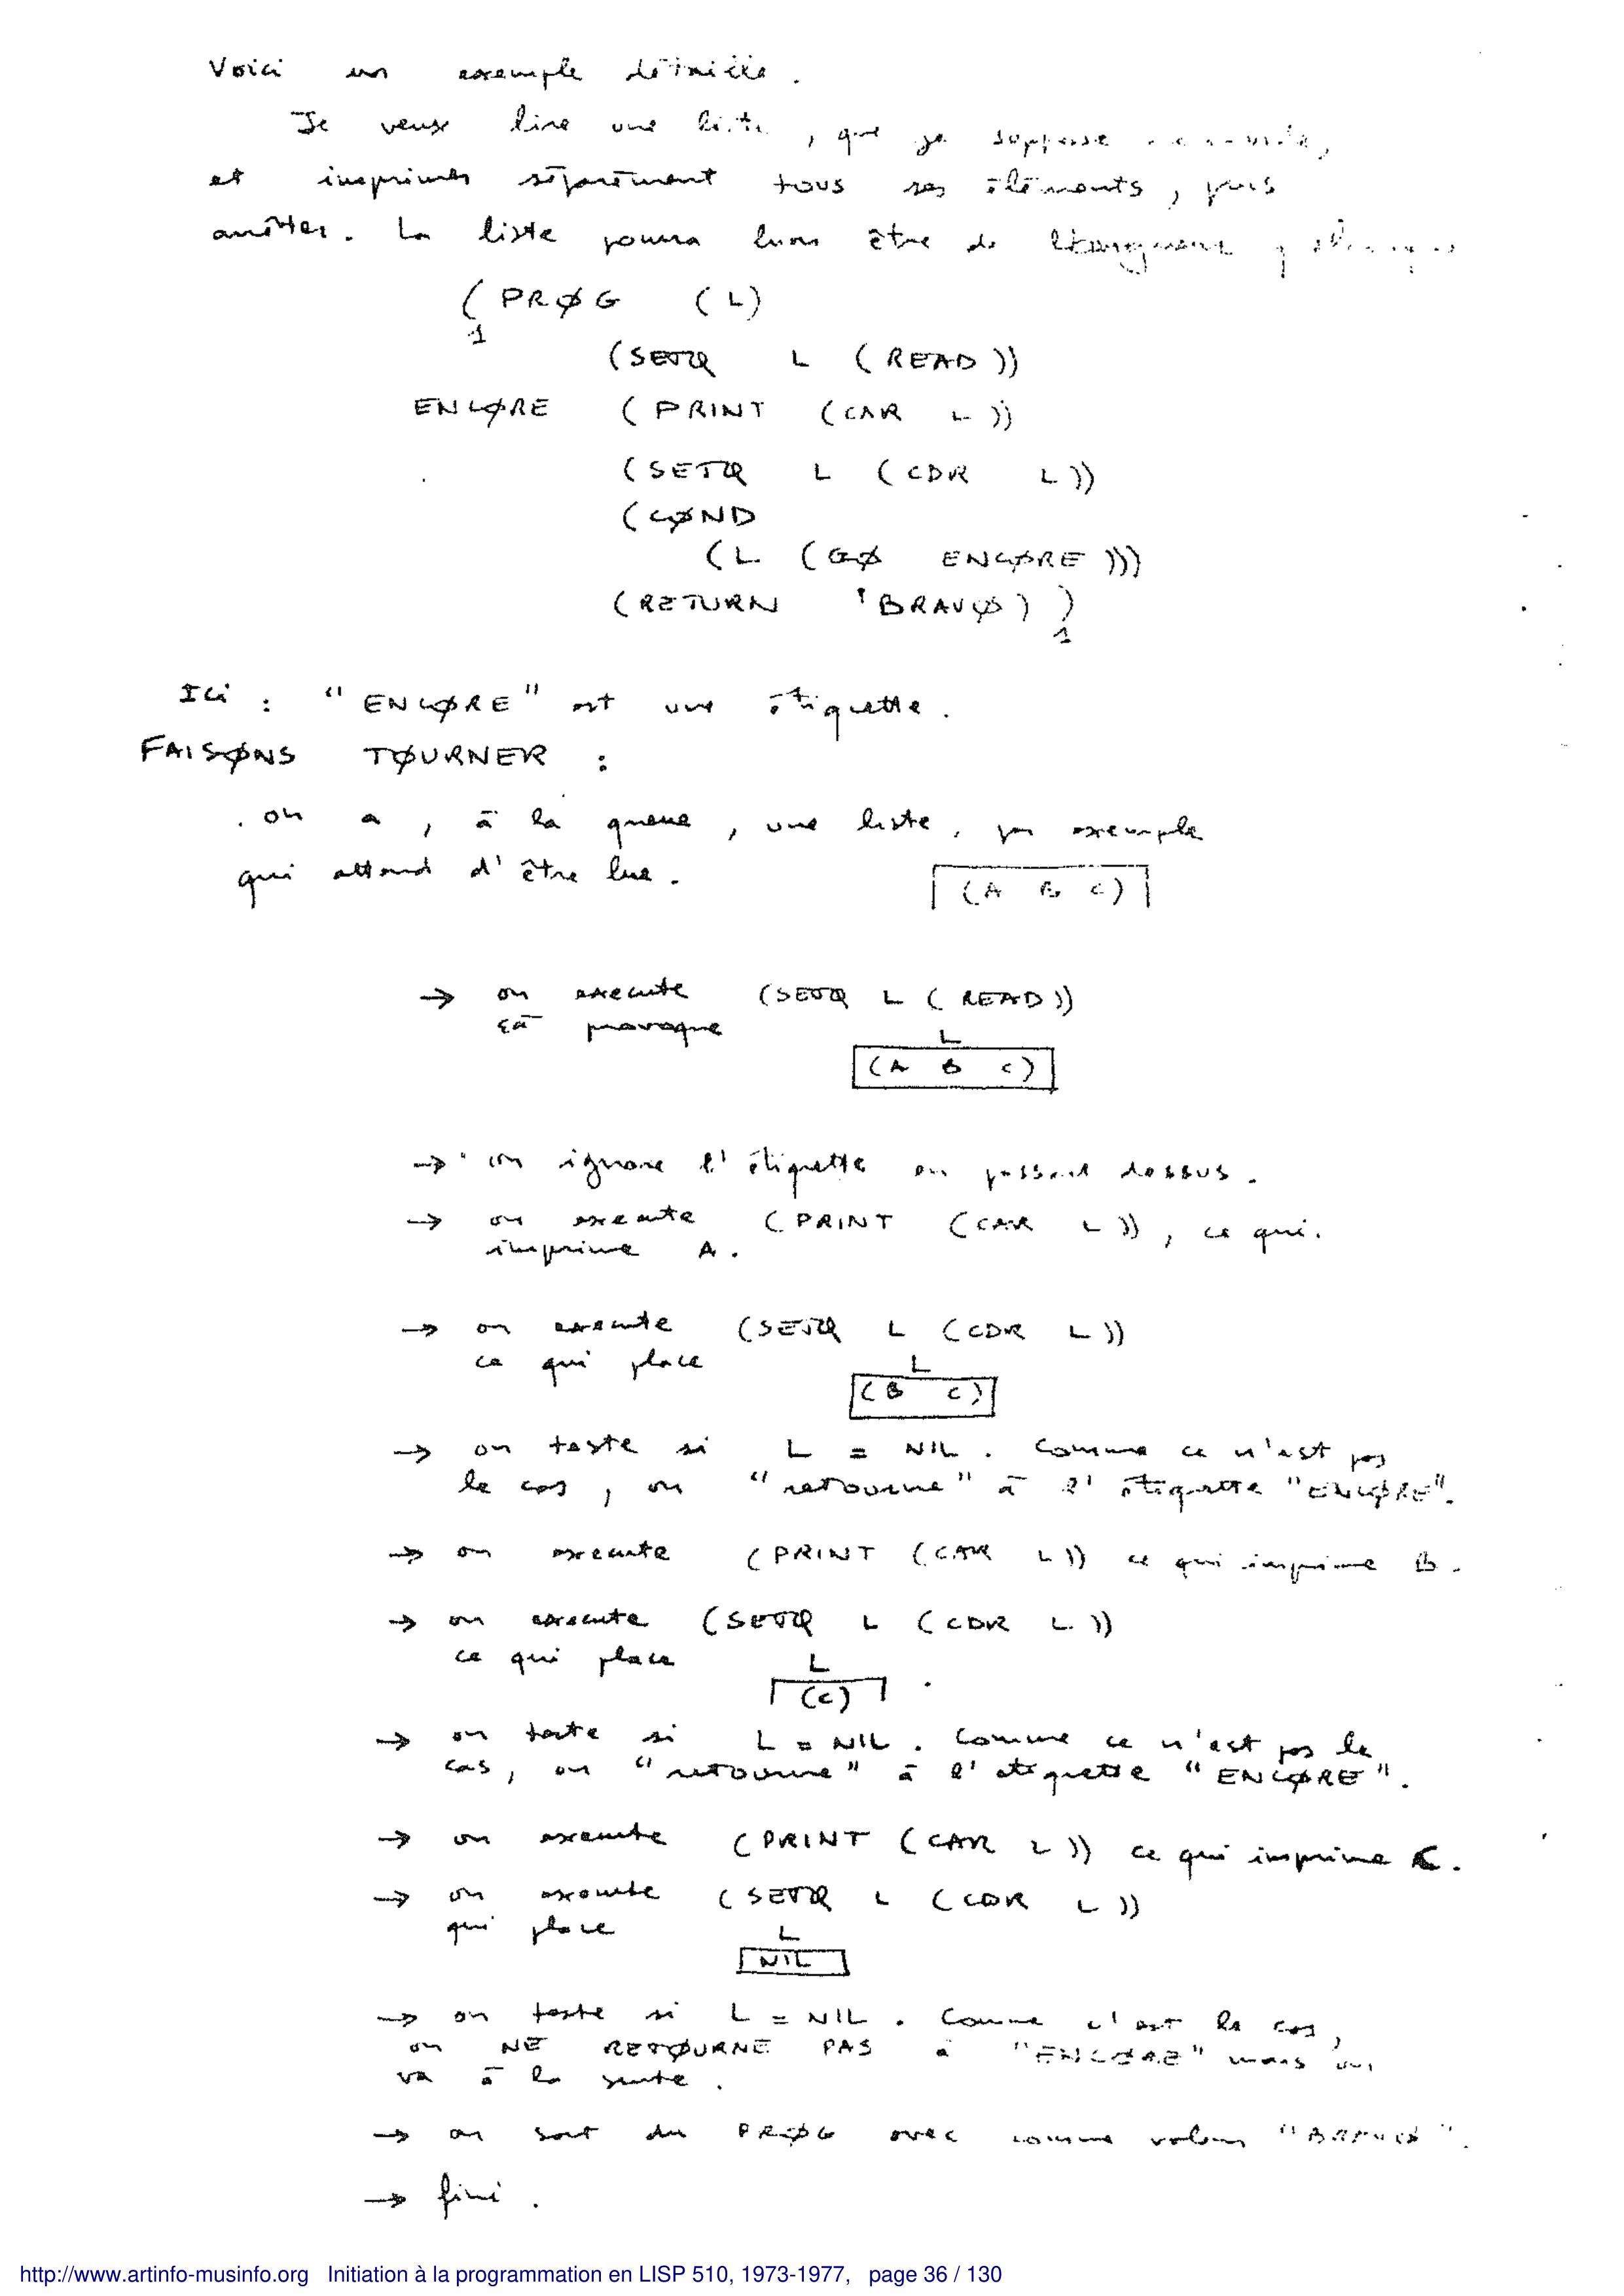 Voici un exemple détaillé.
Je veux lire une liste, que je suppose
et imprimer séparément tous ses éléments, puis
arrêter. La liste pourra bien être de
(PRØG (L)
1
(SETQ L (READ))
ENCØRE (PRINT (CAR L))
(SETQ L (CDR L))
(CØND
(L (GØ ENCØRE)))
(RETURN 'BRAVØ) )
1
Ici : "ENCØRE" est une étiquette.
FAISØNS TØURNER :
. on a, à la queue, une liste, par exemple
qui attend d'être lue.
(A B C)
→ on execute (SETQ L (READ))
çà provoque
L
(A B C)
→ on ignore l'étiquette en passant dessus.
→ on execute (PRINT (CAR L)), ce qui
imprime A.
→ on execute (SETQ L (CDR L))
ce qui place
L
(B C)
→ on teste si L = NIL. Comme ce n'est pas
le cas, on "retourne" à l'étiquette "ENCØRE".
→ on execute (PRINT (CAR L)) ce qui imprime B.
→ on execute (SETQ L (CDR L))
ce qui place
L
(C)
→ on teste si L = NIL. Comme ce n'est pas le
cas, on "retourne" à l'étiquette "ENCØRE".
→ on execute (PRINT (CAR L)) ce qui imprime C.
→ on execute (SETQ L (CDR L))
qui place
L
NIL
→ on teste si L = NIL. Comme c'est le cas,
on NE RETØURNE PAS à "ENCØRE" mais on
va à la suite.
→ on sort du PRØG avec comme valeur "BRAVØ".
→ fini.
http://www.artinfo-musinfo.org Initiation à la programmation en LISP 510, 1973-1977, page 36 / 130